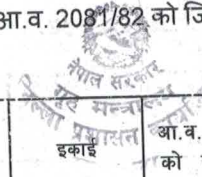 आ.व. 2081/82 को जि
नेपाल सरकार
गृह मन्त्रालय
जिल्ला प्रशासन कार्या
इकाई
आ.व.
को